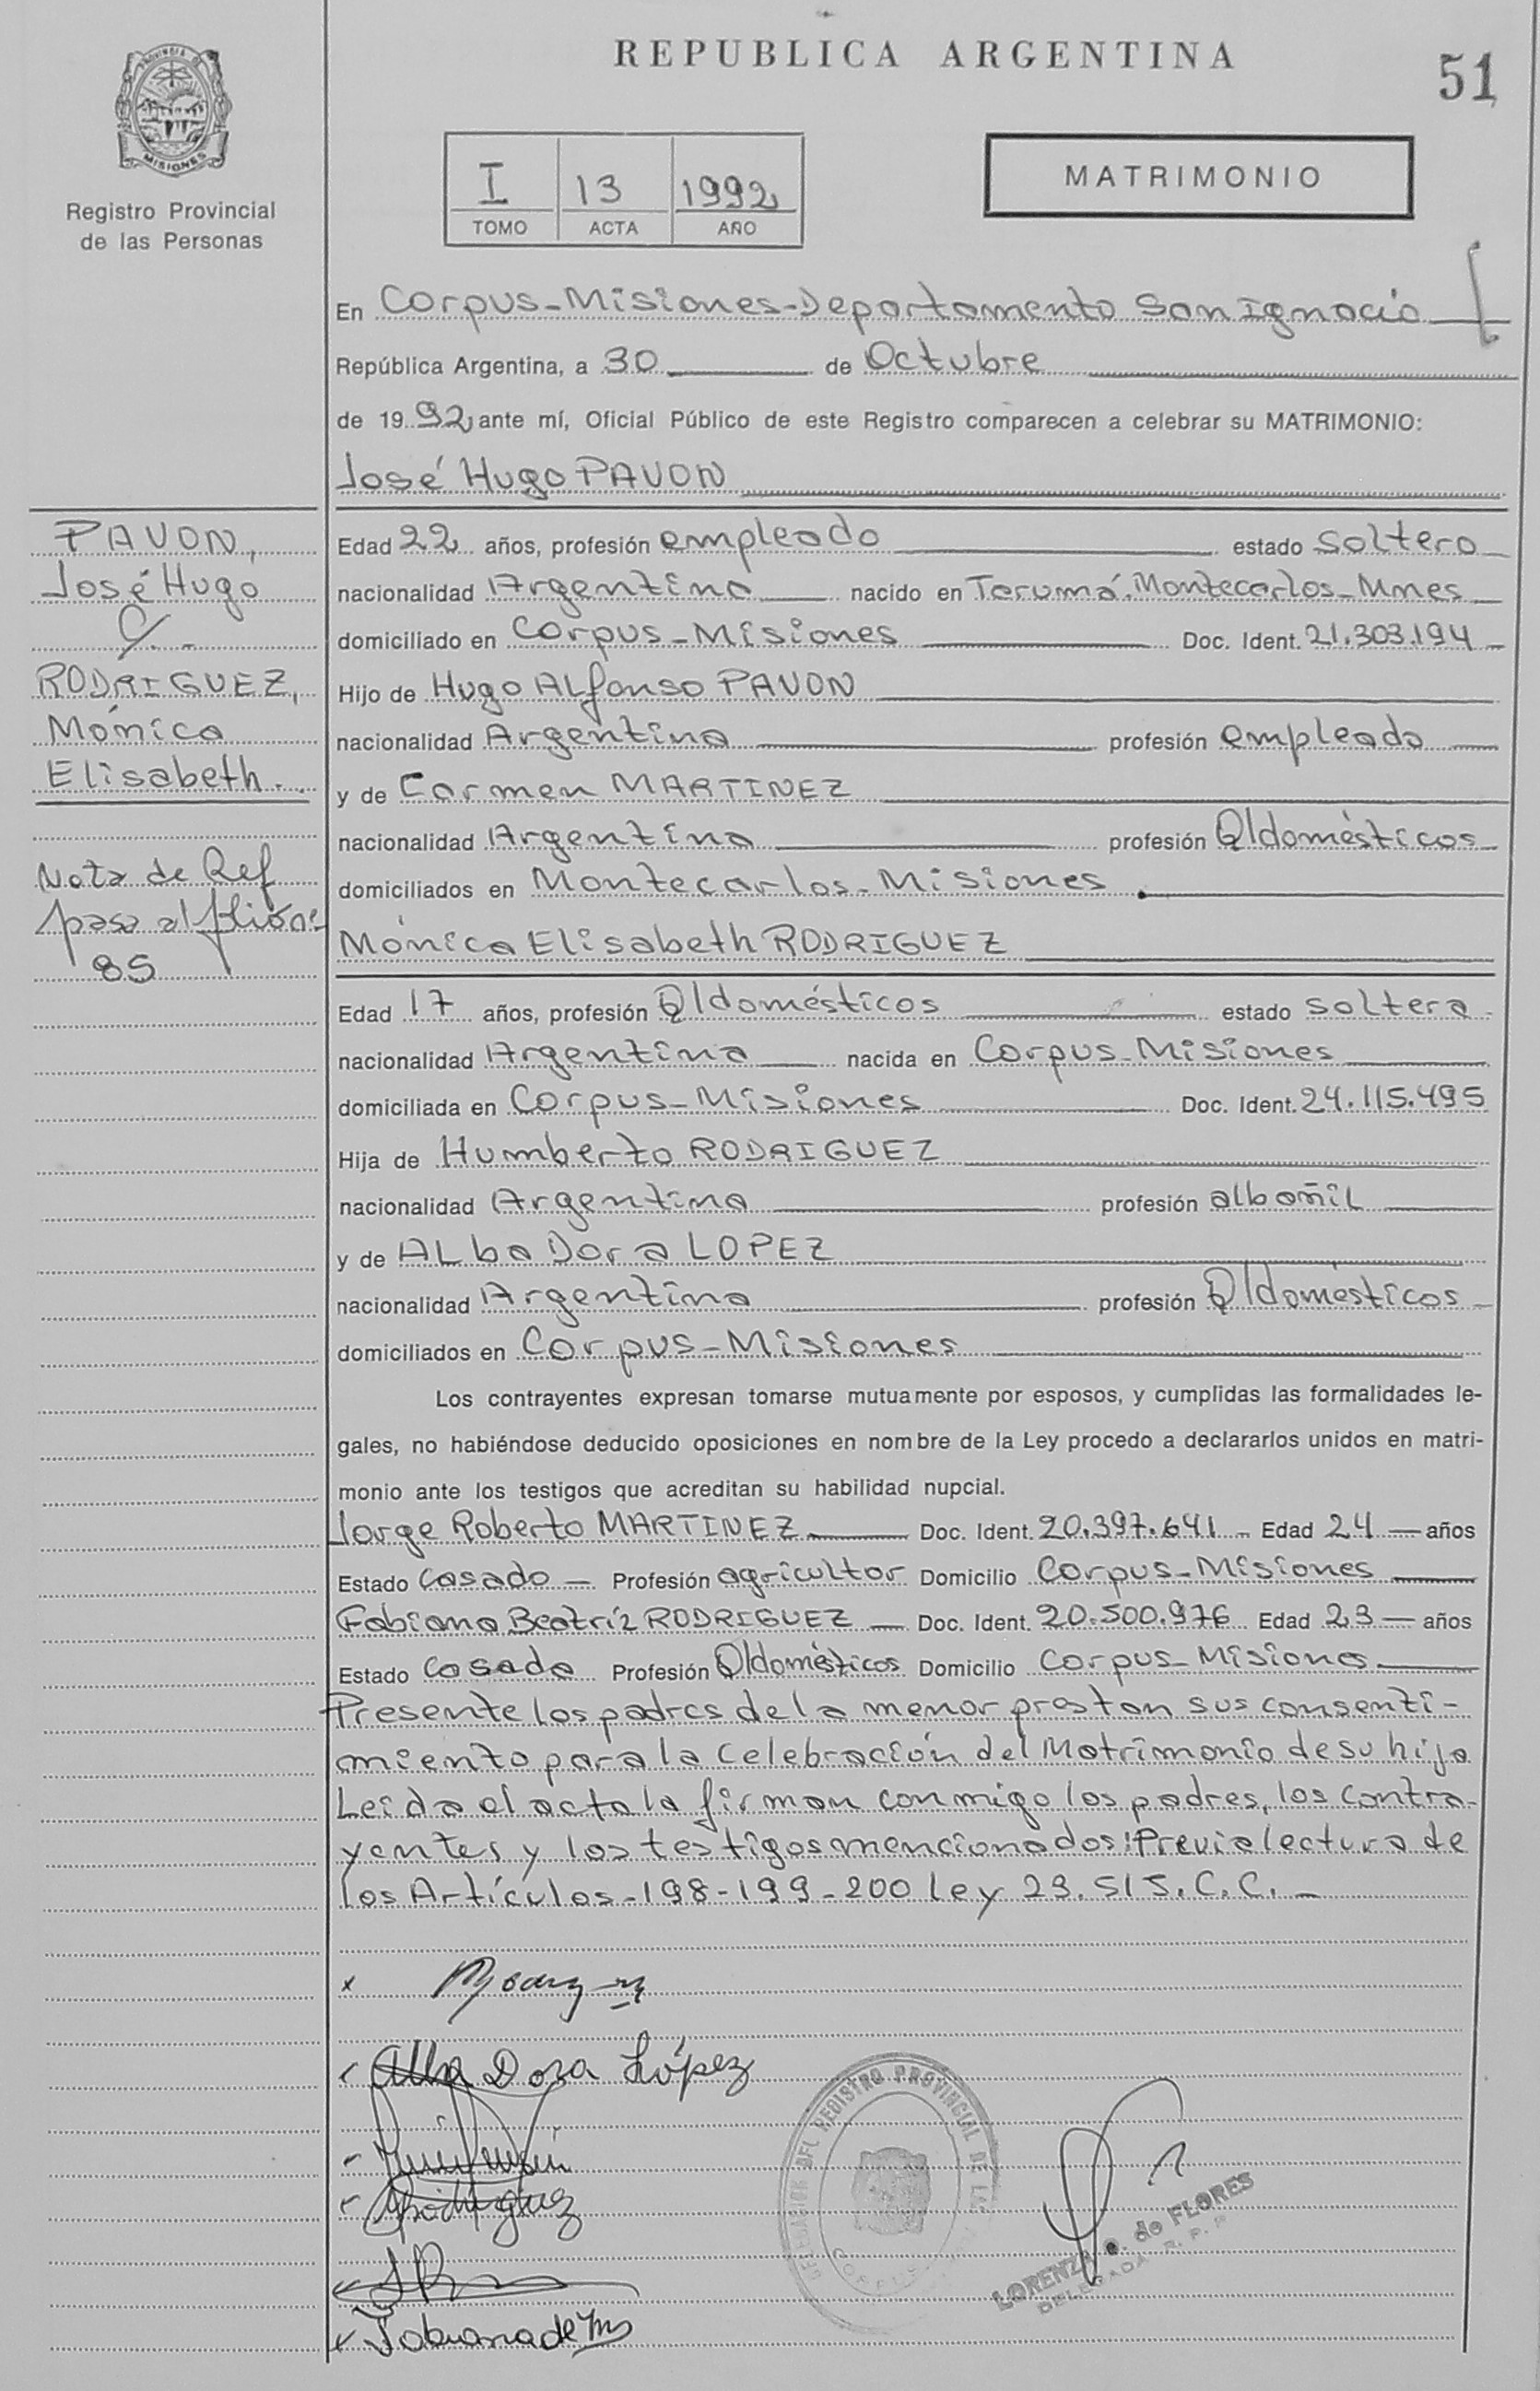 REPUBLICA ARGENTINA
51
PROVINCIA DE
MISIONES
Registro Provincial
de las Personas
I 13 1992
TOMO ACTA AÑO
MATRIMONIO
En Corpus-Misiones-Departamento San Ignacio
República Argentina, a 30 de Octubre
de 1992 ante mí, Oficial Público de este Registro comparecen a celebrar su MATRIMONIO:
José Hugo PAVON
PAVON,
José Hugo
C/.-
RODRIGUEZ,
Mónica
Elisabeth.
Nota de Ref
pasa al folio n°
85
Edad 22 años, profesión empleado estado soltero
nacionalidad Argentina nacido en Tarumá.Montecarlos-Mnes
domiciliado en Corpus-Misiones Doc. Ident. 21.303.194
Hijo de Hugo Alfonso PAVON
nacionalidad Argentina profesión empleado
y de Carmen MARTINEZ
nacionalidad Argentina profesión Q/domésticos
domiciliados en Montecarlos-Misiones.
Mónica Elisabeth RODRIGUEZ
Edad 17 años, profesión Q/domésticos estado soltera
nacionalidad Argentina nacida en Corpus-Misiones
domiciliada en Corpus-Misiones Doc. Ident. 24.115.495
Hija de Humberto RODRIGUEZ
nacionalidad Argentina profesión albañil
y de Alba Dora LOPEZ
nacionalidad Argentina profesión Q/domésticos
domiciliados en Corpus-Misiones
Los contrayentes expresan tomarse mutuamente por esposos, y cumplidas las formalidades le-
gales, no habiéndose deducido oposiciones en nombre de la Ley procedo a declararlos unidos en matri-
monio ante los testigos que acreditan su habilidad nupcial.
Jorge Roberto MARTINEZ Doc. Ident. 20.397.641 Edad 24 años
Estado casado Profesión agricultor Domicilio Corpus-Misiones
Fabiana Beatríz RODRIGUEZ Doc. Ident. 20.500.976 Edad 23 años
Estado casada Profesión Q/domésticos Domicilio Corpus-Misiones
Presente los padres de la menor prestan sus consenti-
miento para la celebración del Matrimonio de su hija
Leida el acta la firman conmigo los padres, los contra-
yentes y los testigos mencionados: Previa lectura de
los Artículos-198-199-200 Ley 23.515.C.C.-
Alba Dora López
Rodriguez
Fabiana de M
DELEGACION DEL REGISTRO PROVINCIAL DE LA
CORPUS
LORENZA de FLORES
DELEGADA R. P. P.